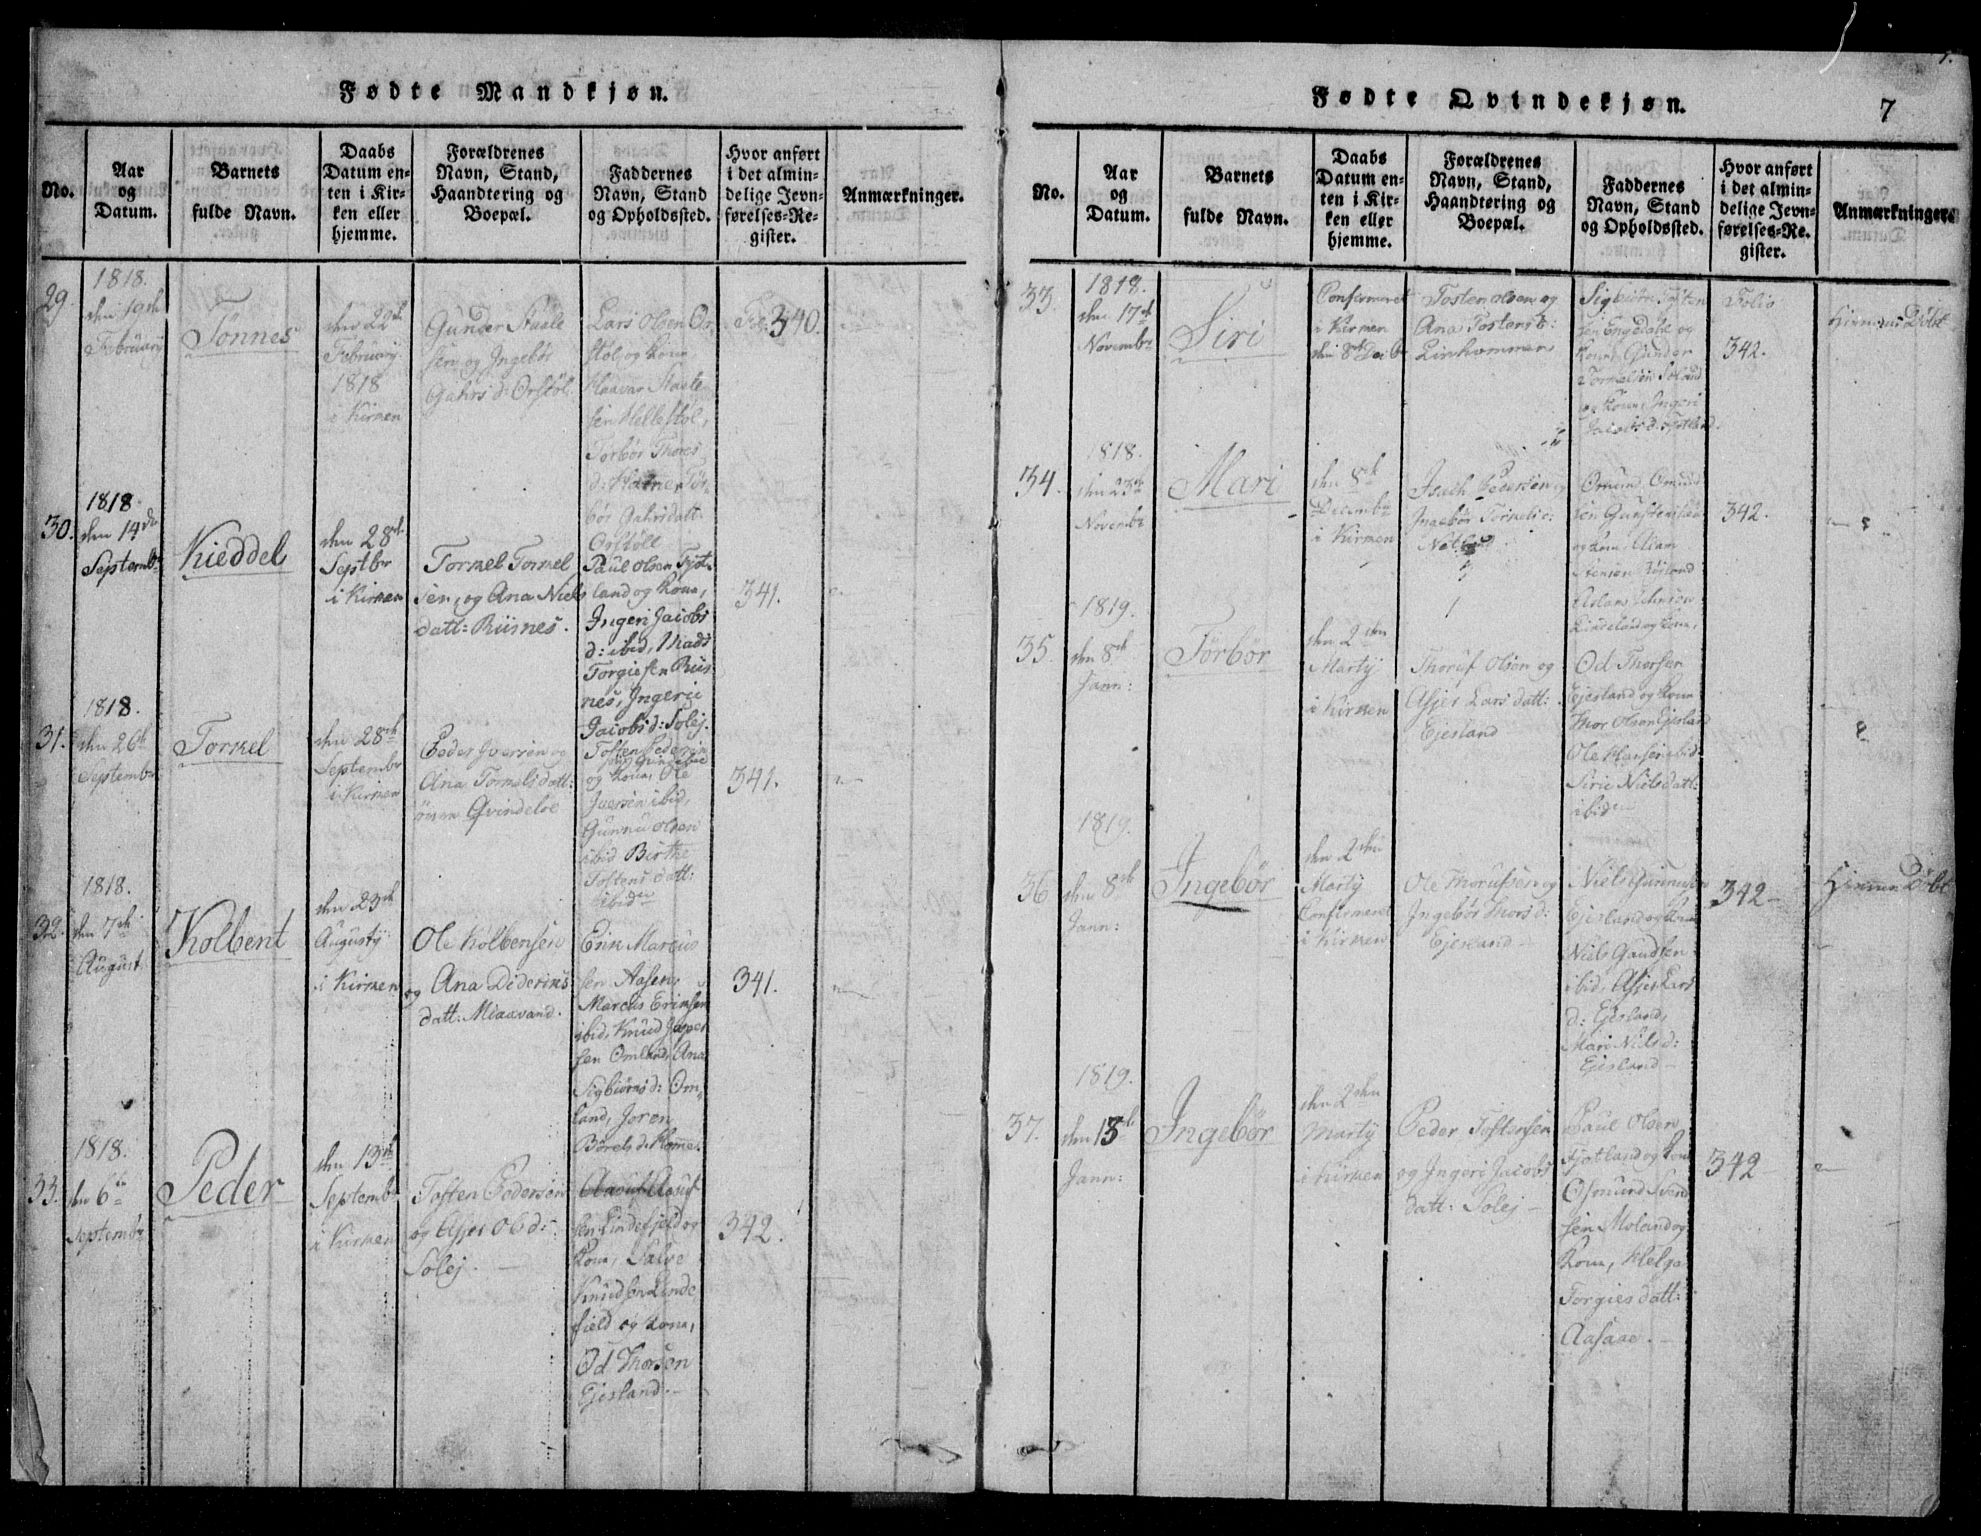 Fødte Mandkjøn.
No.
Aar
og
Datum.
Barnets
fulde Navn.
Daabs
Datum en-
ten i Kir-
ken eller
hjemme.
Forældrenes
Navn, Stand,
Haandtering og
Boepæl.
Faddernes
Navn, Stand
og Opholdssted.
Hvor anført
i det almin-
delige Jevn-
førelses-Re-
gister.
Anmærkninger.
29.
1818.
den
Februarij
Tønnes
den 22de
Februarij
1818
i Kirken
Gunder Staale
sen og Ingebør
d: Orstøl
Lars Olsen Or-
støl og Kone
Haavar Staale
sen Hellestøl,
Torbør Thores
d:
bør
Orstøll
Fol: 340.
30.
1818.
den 14de
Septembr
Kieddel
den 28de
Septbr
i Kirken
Tormel Tormel
sen, og Ana Niels
datt: Risnes.
Paul Olsen Fjot-
land og Kone,
Ingeri Jacobs
d: ibid, Mads
Torgiesen Riis
nes, Ingerie
Jacobs d: Solej.
341.
31.
1818.
den 26de
Septembr
Tormel
den 28de
Septembr
i Kirken
Peder Iversen og
Ana Tormels datt:
Qvindeloe
Tosten Pedersen
og Kone, Ole
Iversen ibid,
Gunnu Olsen
ibid Birthe
Tostens datt:
ibidem
341.
32.
1818.
den 7de
August
Kolbent
den 23de
Augusty
i Kirken
Ole Kolbensen
og Ana Dideriks
datt: Miaavand.
Erik Marcus
sen Aasen,
Marcus Eriksen
ibid, Knud
sen Omland, Ana
Sigbiørns d: Om-
land, Joren
Børels d:
341.
33.
1818.
den 6te
Septembr
Peder
den 13de
Septembr
i Kirken
Tosten Pedersen
og Asjer Ols d:
Solej.
Aasuf
sen Lindefjeld og
Kone, Salve
Knudsen Linde
field og Kone,
Od Thorsen
Ejesland.
342.
Fødte Qvindekjøn.
7
No.
Aar
og
Datum.
Barnets
fulde Navn.
Daabs
Datum en-
ten i Kir-
ken eller
hjemme.
Forældrenes
Navn, Stand,
Haandtering og
Boepæl.
Faddernes
Navn, Stand
og Opholdssted.
Hvor anført
i det almin-
delige Jevn-
førelses-Re-
gister.
Anmærkninger.
33.
1818.
den 17de
Novembr
Siri
Confirmeret
i Kirken
den 8de Decbr
Tosten Olsen og
Ana
Sigbiørn Tosten
sen Engedahl og
Kone, Gunder
Tormelsen
og Kone, Ingeri
Jacobs d: Fjotland.
Folio
342.
Hiemme Døbt
34.
1818.
den 23de
Novembr
Mari
den 8de
Decembr
i Kirken
Isach Pedersen og
Ingebør
Netland
Omund
sen
og Kone, Adam
Aslak Johnsen
Lindeland og Kone,
342.
35.
1819.
den 8de
Jann:
Tørbør
den 2den
Marty
i Kirken
Thoruf Olsen og
Asjer Lars datt:
Ejesland
Od Thorsen
Ejesland og Kone
Thor Olsen Ejesland
Ole Hansen ibid:
Sirie Niels datt:
ibid
36.
1819.
den 8de
Jann:
Ingebør
den 2den
Marty
Confirmeret
i Kirken
Ole Thorufsen og
Ingebør Thors d:
Ejesland
Niels Gunnusen
Ejesland og Kone
Niels
ibid, Asjer Lars
d: Ejesland,
Mari Niels d:
Ejesland
342
Hiemme Døbt
37.
1819.
den 13de
Jann:
Ingebør
den 2den
Marty
i Kirken
Peder Tostensen
og Ingeri Jacobs
datt: Solej
Paul Olsen
Fjotland og Kone
Osmund Svend
sen Moland og
Kone, Helga
Torgies datt:
Aasaae.
342